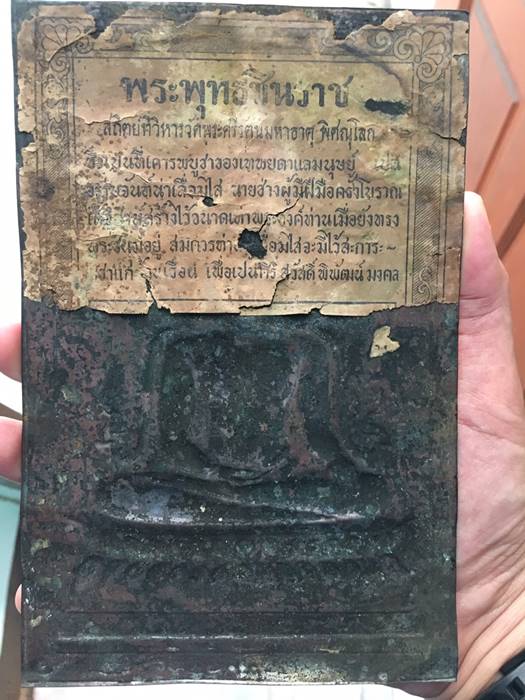 พระพุทธชินราช
สถิตย์ที่วิหารวัดพระศรีรัตนมหาธาตุ พิศณุโลก
ซึ่งเป็นที่เคารพบูชาของเทพยดาแลมนุษย์
นายช่างผู้มีฝีมือครั้งโบราณ
สร้างไว้ขนาดเท่าพระองค์ท่านเมื่อยังทรง
พระชนม์อยู่ สมควรท่าน มีไว้สะการะ~
เรือน เพื่อเปนศิริ สวัสดิ์ พิพัฒน์ มงคล